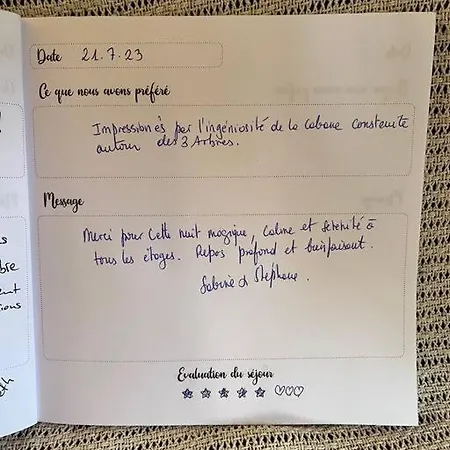 Date 21.7.23
Ce que nous avons préféré
Impressionnés par l'ingéniosité de la Cabane Construite
autour des 3 Arbres.
Message
Merci pour Cette nuit magique, Calme et Sérénité à
tous les étages. Repos profond et bienfaisant.
Sabine & Stephane.
Evaluation du séjour